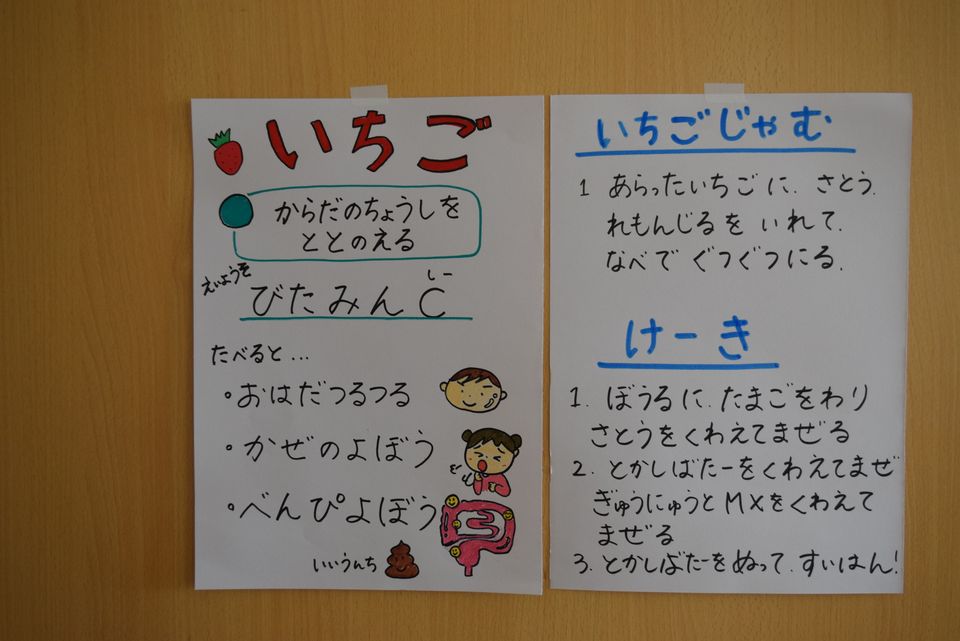 いちご
からだのちょうしを
ととのえる
えいようそ
しー
びたみんC
たべると...
・おはだつるつる
・かぜのよぼう
・べんぴよぼう
いいうんち
いちごじゃむ
1 あらったいちごに、さとう、
れもんじるを いれて、
なべで ぐつぐつにる。
けーき
1. ぼうるに、たまごをわり
さとうをくわえてまぜる
2. とかしばたーをくわえてまぜ
ぎゅうにゅうとMXをくわえて
まぜる
3. とかしばたーをぬって、すいはん!